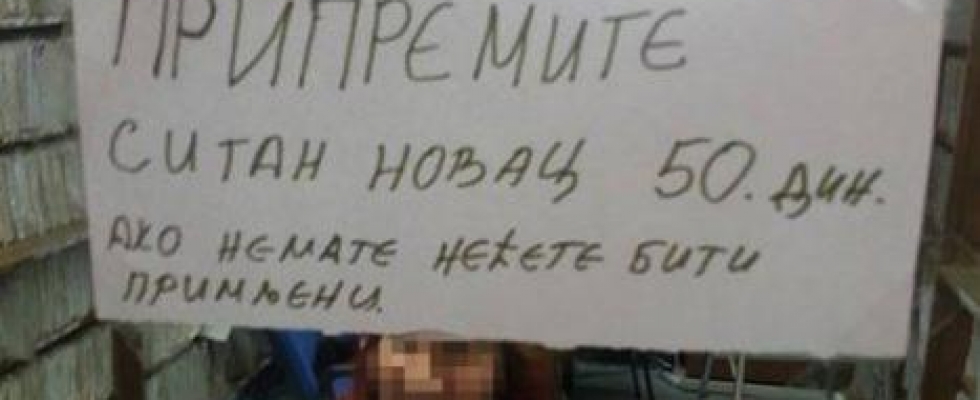 ПРИПРЕМИТЕ
СИТАН НОВАЦ 50. ДИН.
АКО НЕМАТЕ НЕЋЕТЕ БИТИ
ПРИМЉЕНИ.